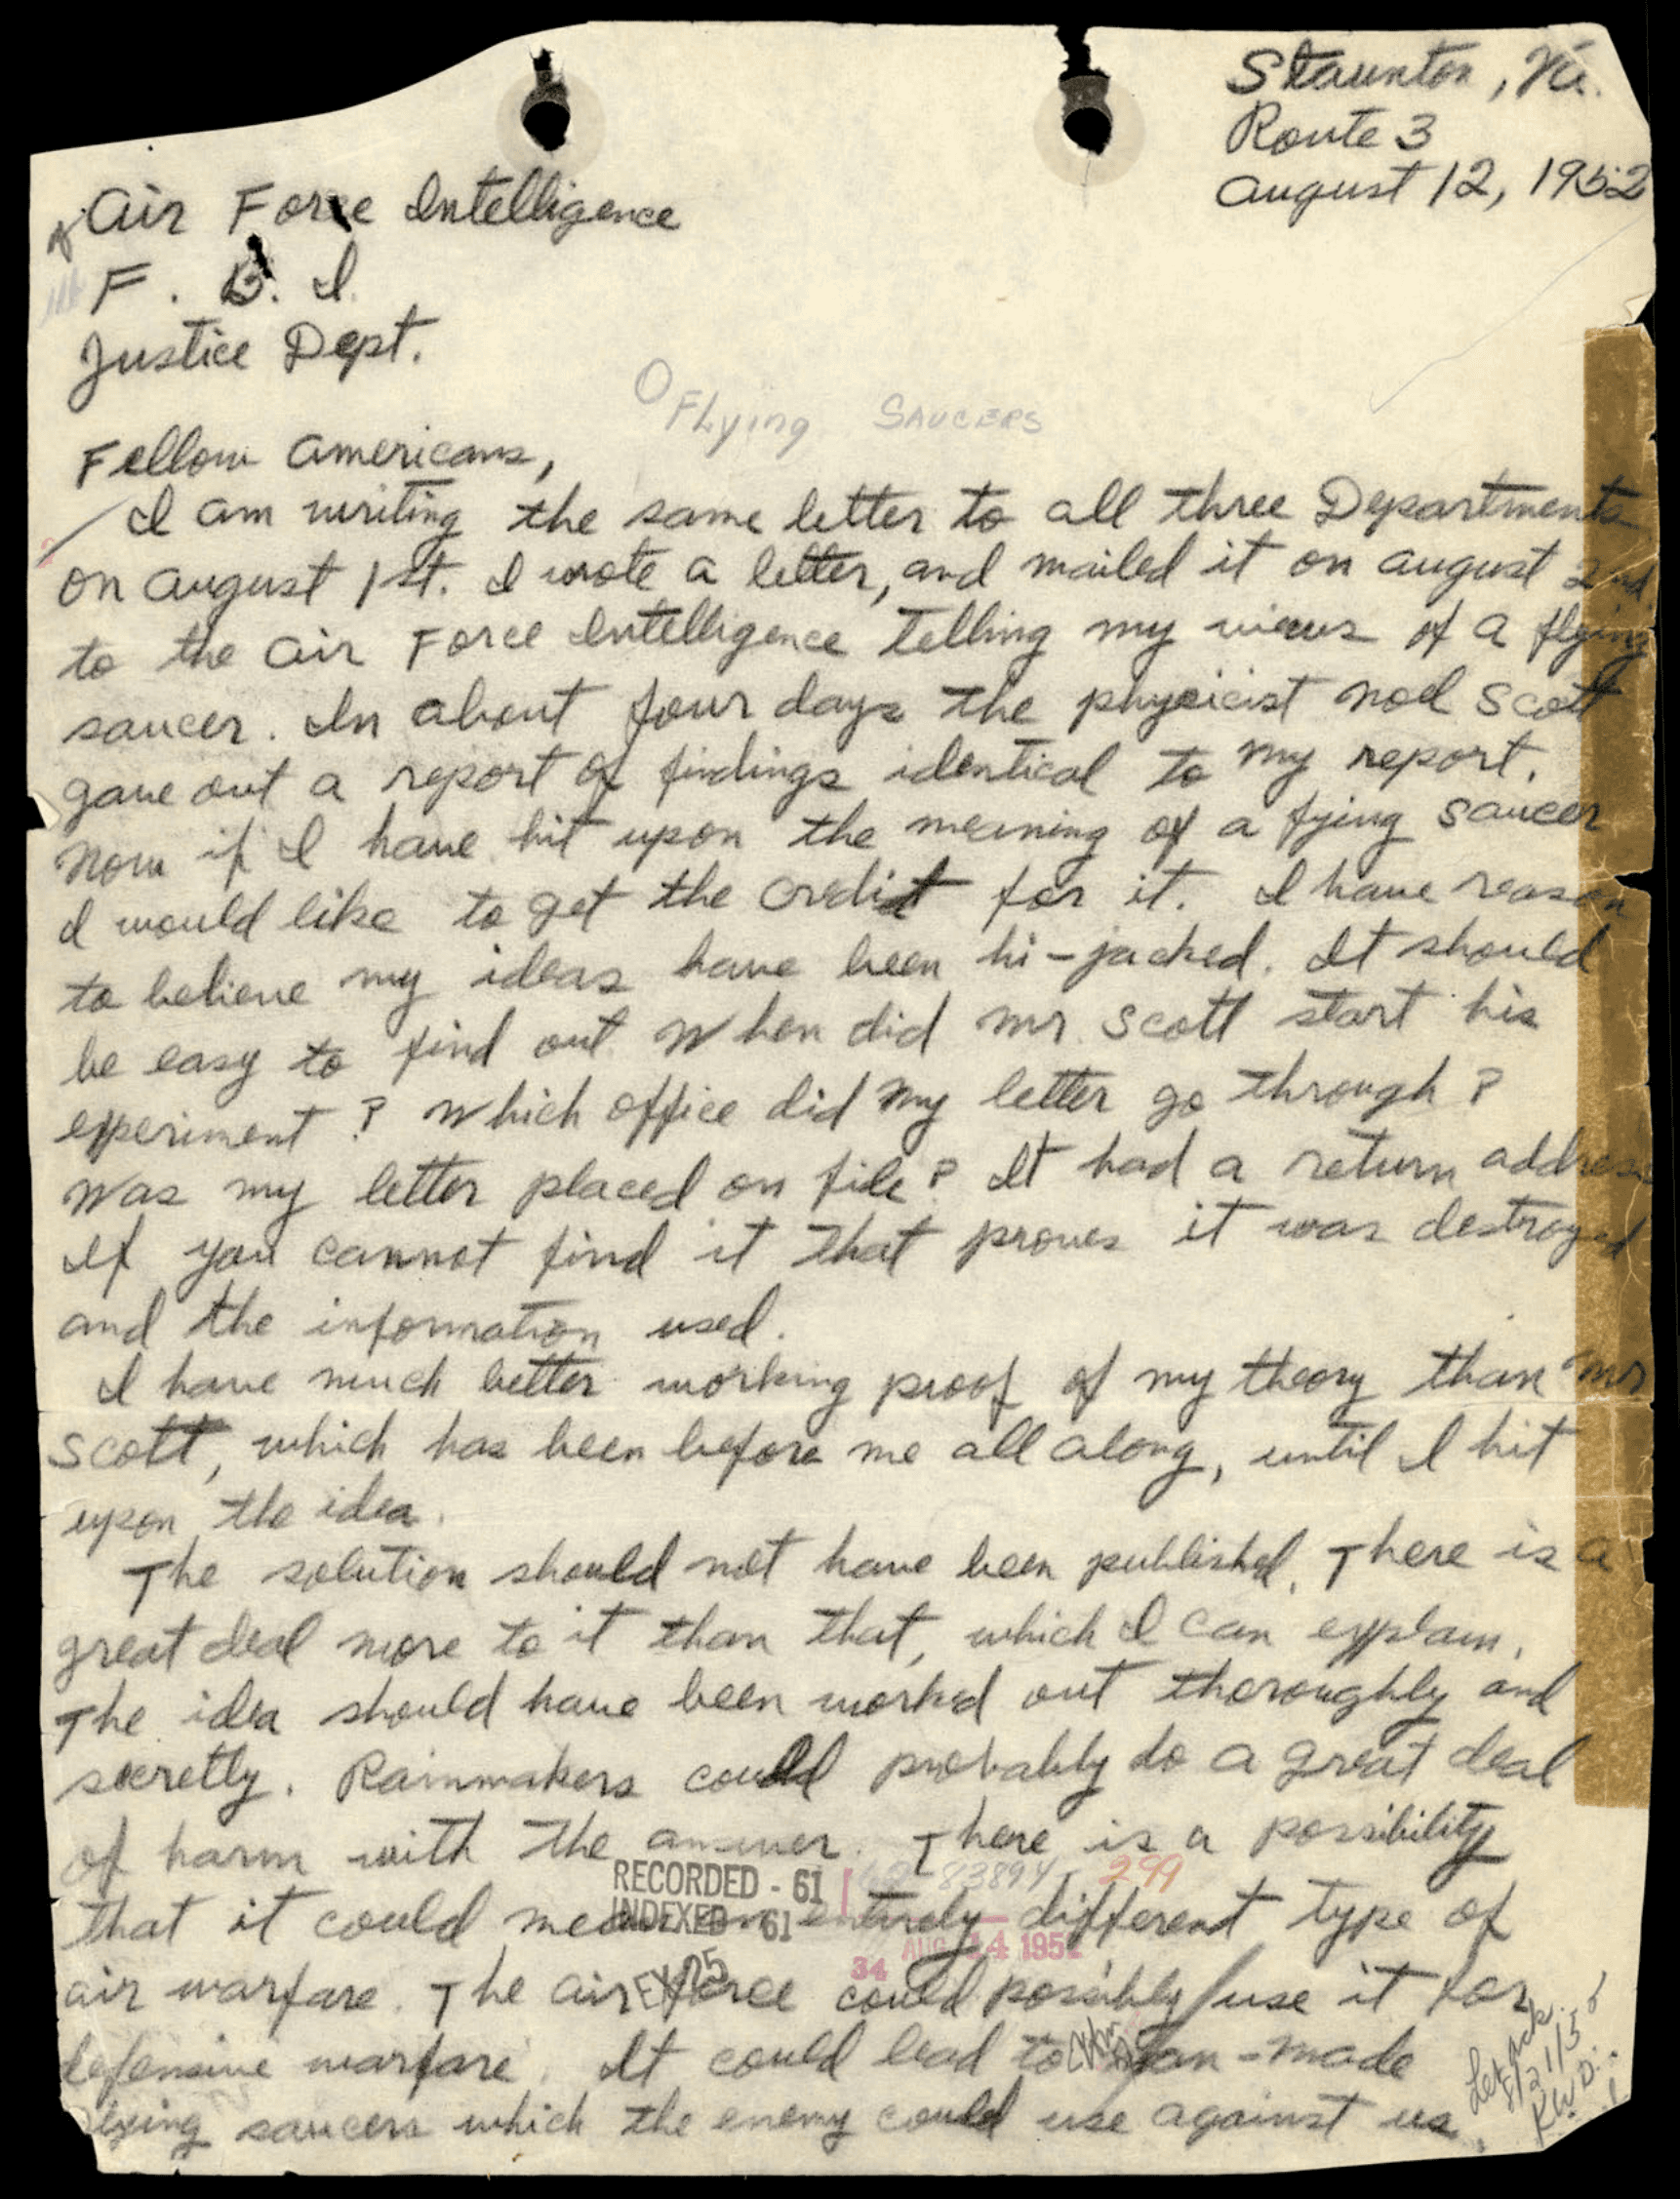 Staunton, Va.
Route 3
August 12, 1952
Air Force Intelligence
F. B. I.
Justice Dept.
Flying Saucers
Fellow Americans,
I am writing the same letter to all three Departments
on August 1st. I wrote a letter, and mailed it on August 2nd.
to the Air Force Intelligence telling my views of a flying
saucer. In about four days the physicist Noel Scott
gave out a report of findings identical to my report.
Now if I have hit upon the meaning of a fying saucer
I would like to get the credit for it. I have reason
to believe my ideas have been hi-jacked. It should
be easy to find out. When did Mr. Scott start his
experiment? Which office did my letter go through?
Was my letter placed on file? It had a return address
If you cannot find it that proves it was destroyed
and the information used.
I have much better working proof of my theory than Mr
Scott, which has been before me all along, until I hit
upon the idea.
The solution should not have been published. There is a
great deal more to it than that, which I can explain.
The idea should have been worked out thoroughly and
secretly. Rainmakers could probably do a great deal
of harm with the answer. There is a possibility
RECORDED - 61 62-83894 299
that it could mean an entirely different type of
INDEXED - 61
AUG 14 1952
34
air warfare. The air force could possibly use it for
EX-25
defensive warfare. It could lead to man-made
flying saucers which the enemy could use against us.
Let ack.
8/21/52